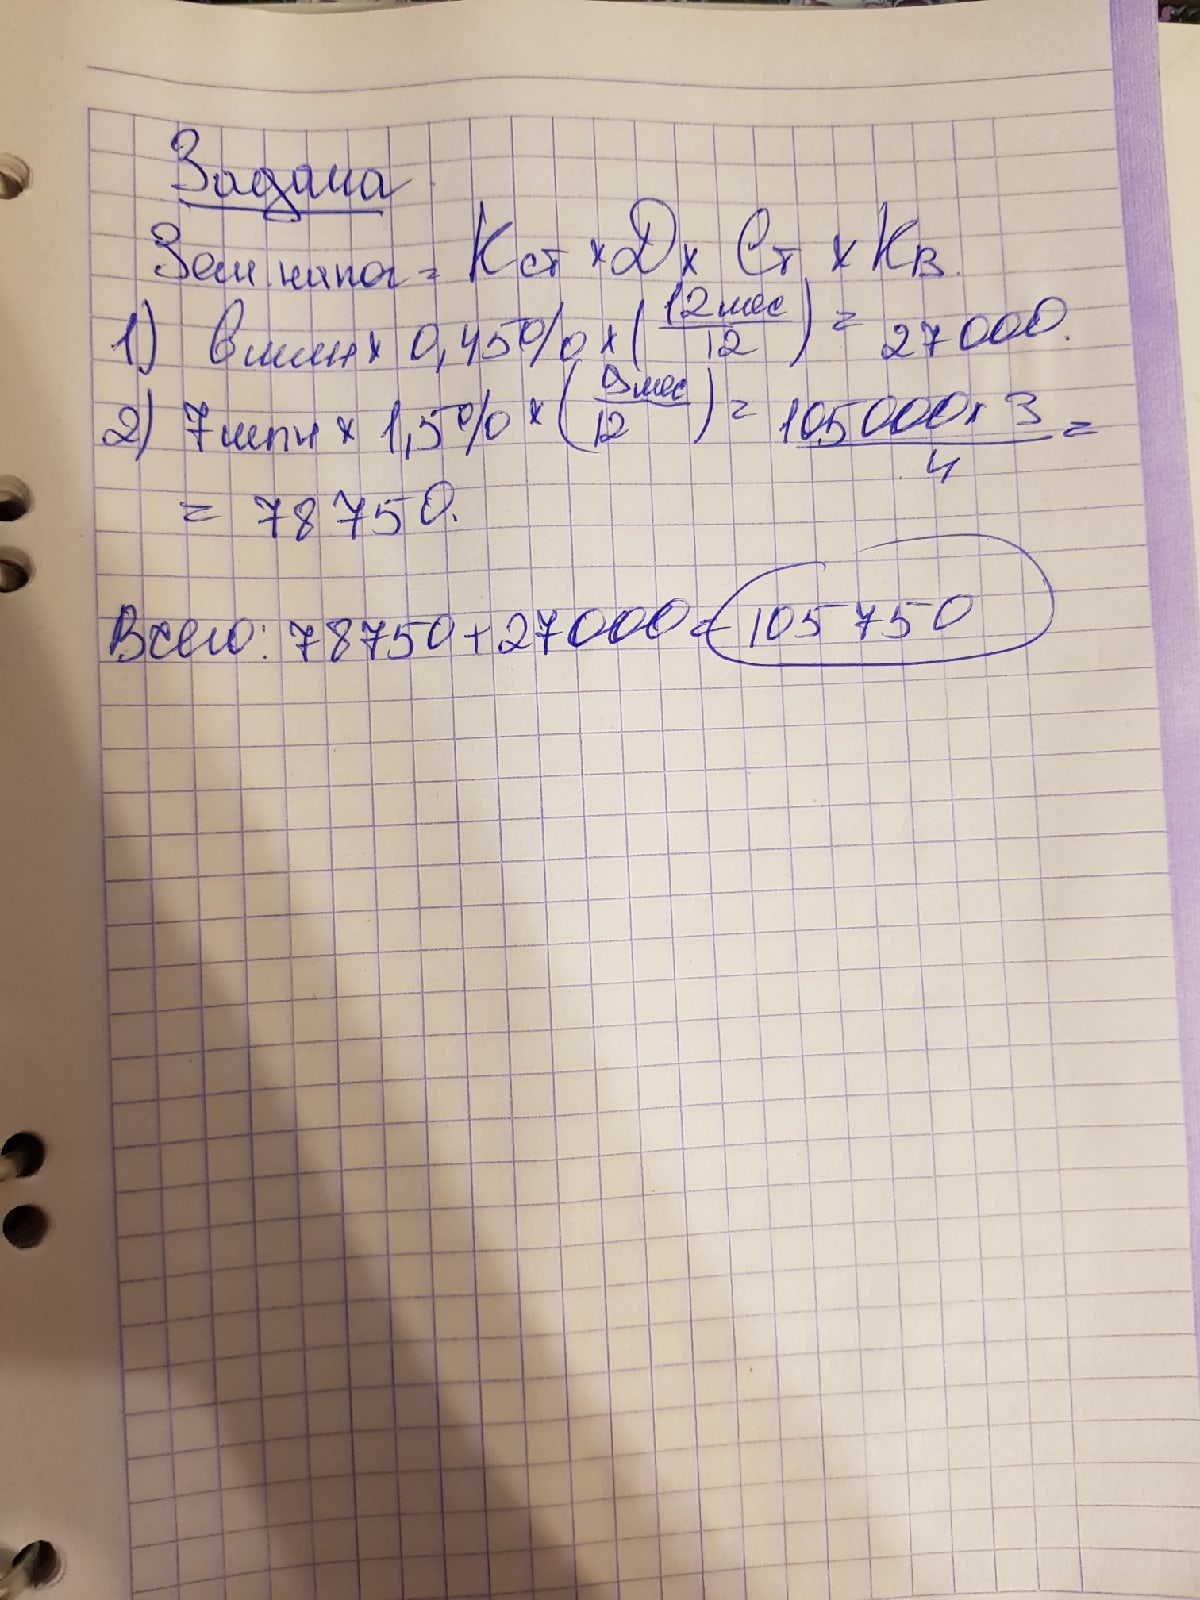 Задача
Зем. налог = Кст × Д × Ст × Кв.
1) 6 млн × 0,45% × (12 мес/12) = 27000.
2) 7 млн × 1,5% × (9 мес/12) = 105000 × 3/4 =
= 78750.
Всего: 78750 + 27000 = 105750